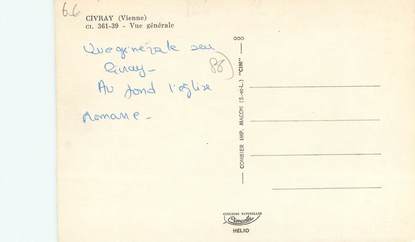 6.6
CIVRAY (Vienne)
Ct. 361-39 - Vue générale
Vue générale sur
Civray -
Au fond l'église
Romane -
86
COMBIER IMP. MACON (S.-et-L.) "CIM"
COULEURS NATURELLES
HELIO